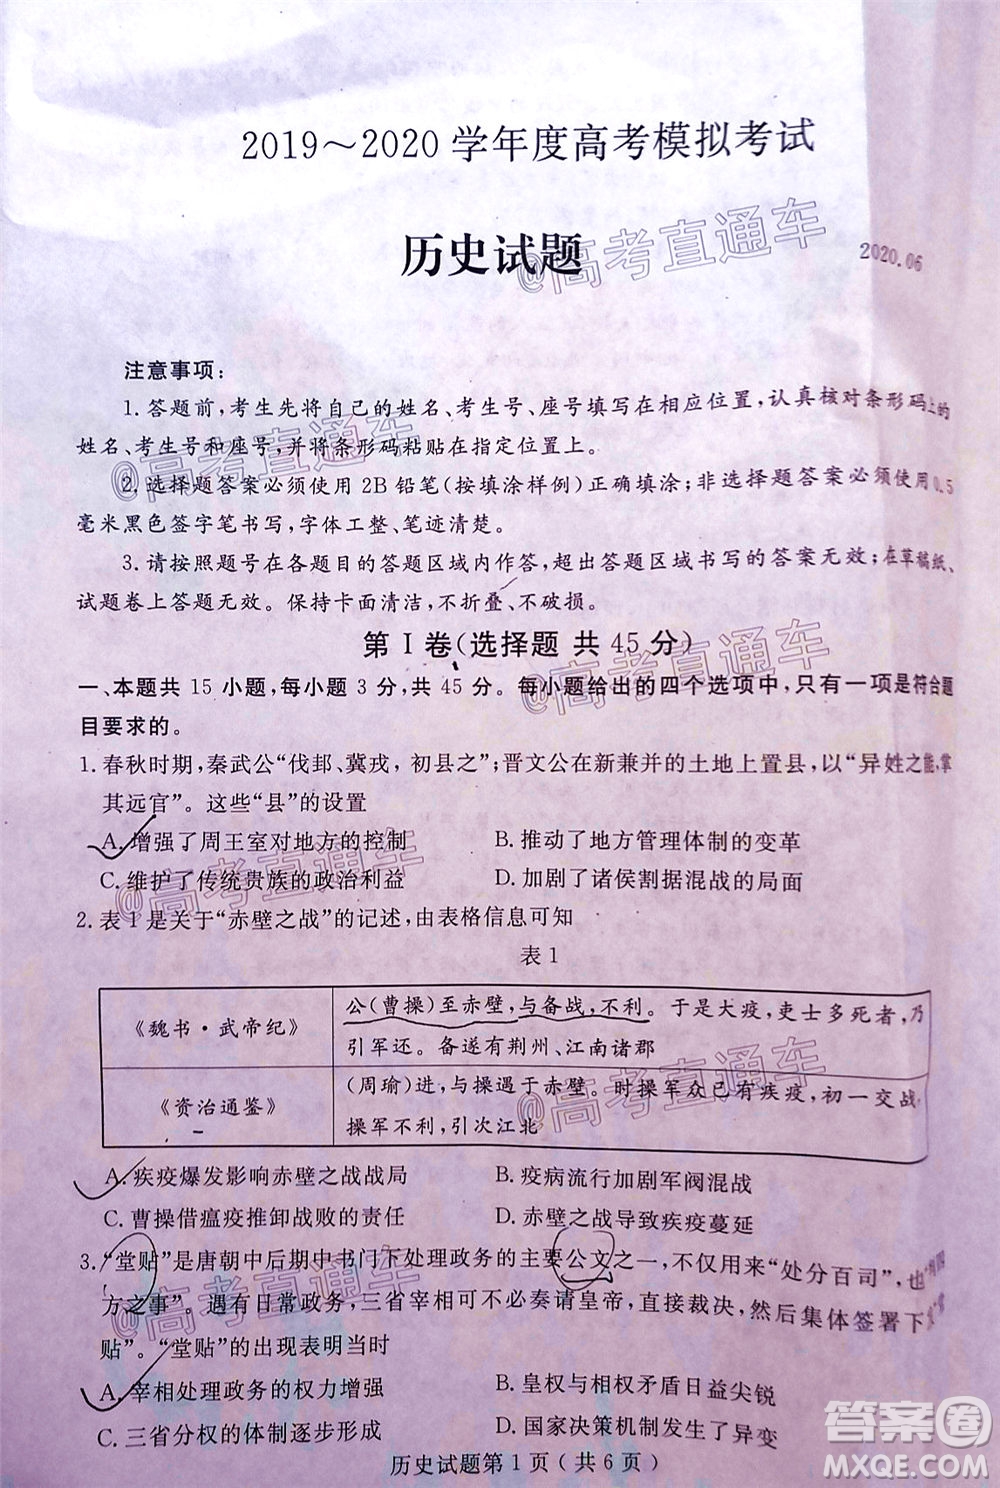 2019～2020 学年度高考模拟考试
历史试题
2020.06
@高考直通车
注意事项:
1. 答题前,考生先将自己的姓名、考生号、座号填写在相应位置,认真核对条形码上的
姓名、考生号和座号,并将条形码粘贴在指定位置上。
@高考直通车
2. 选择题答案必须使用 2B 铅笔(按填涂样例)正确填涂;非选择题答案必须使用 0.5
毫米黑色签字笔书写,字体工整、笔迹清楚。
3. 请按照题号在各题目的答题区域内作答,超出答题区域书写的答案无效;在草稿纸、
试题卷上答题无效。保持卡面清洁,不折叠、不破损。
第 Ⅰ 卷(选择题 共 45 分)
@高考直通车
一、本题共 15 小题,每小题 3 分,共 45 分。每小题给出的四个选项中,只有一项是符合题
目要求的。
1. 春秋时期,秦武公“伐邽、冀戎,初县之”;晋文公在新兼并的土地上置县,以“异姓之能,掌
其远官”。这些“县”的设置
A. 增强了周王室对地方的控制 B. 推动了地方管理体制的变革
C. 维护了传统贵族的政治利益 D. 加剧了诸侯割据混战的局面
@高考直通车
2. 表 1 是关于“赤壁之战”的记述,由表格信息可知
表 1
《魏书·武帝纪》 公(曹操)至赤壁,与备战,不利。于是大疫,吏士多死者,乃
引军还。备遂有荆州、江南诸郡
《资治通鉴》 (周瑜)进,与操遇于赤壁。时操军众已有疾疫,初一交战,
操军不利,引次江北
@高考直通车
A. 疾疫爆发影响赤壁之战战局 B. 疫病流行加剧军阀混战
C. 曹操借瘟疫推卸战败的责任 D. 赤壁之战导致疾疫蔓延
3. “堂贴”是唐朝中后期中书门下处理政务的主要公文之一,不仅用来“处分百司”,也
方之事”。遇有日常政务,三省宰相可不必奏请皇帝,直接裁决,然后集体签署下
贴”。“堂贴”的出现表明当时
@高考直通车
A. 宰相处理政务的权力增强 B. 皇权与相权矛盾日益尖锐
C. 三省分权的体制逐步形成 D. 国家决策机制发生了异变
历史试题第 1 页(共 6 页)
答案圈
MXQE.COM